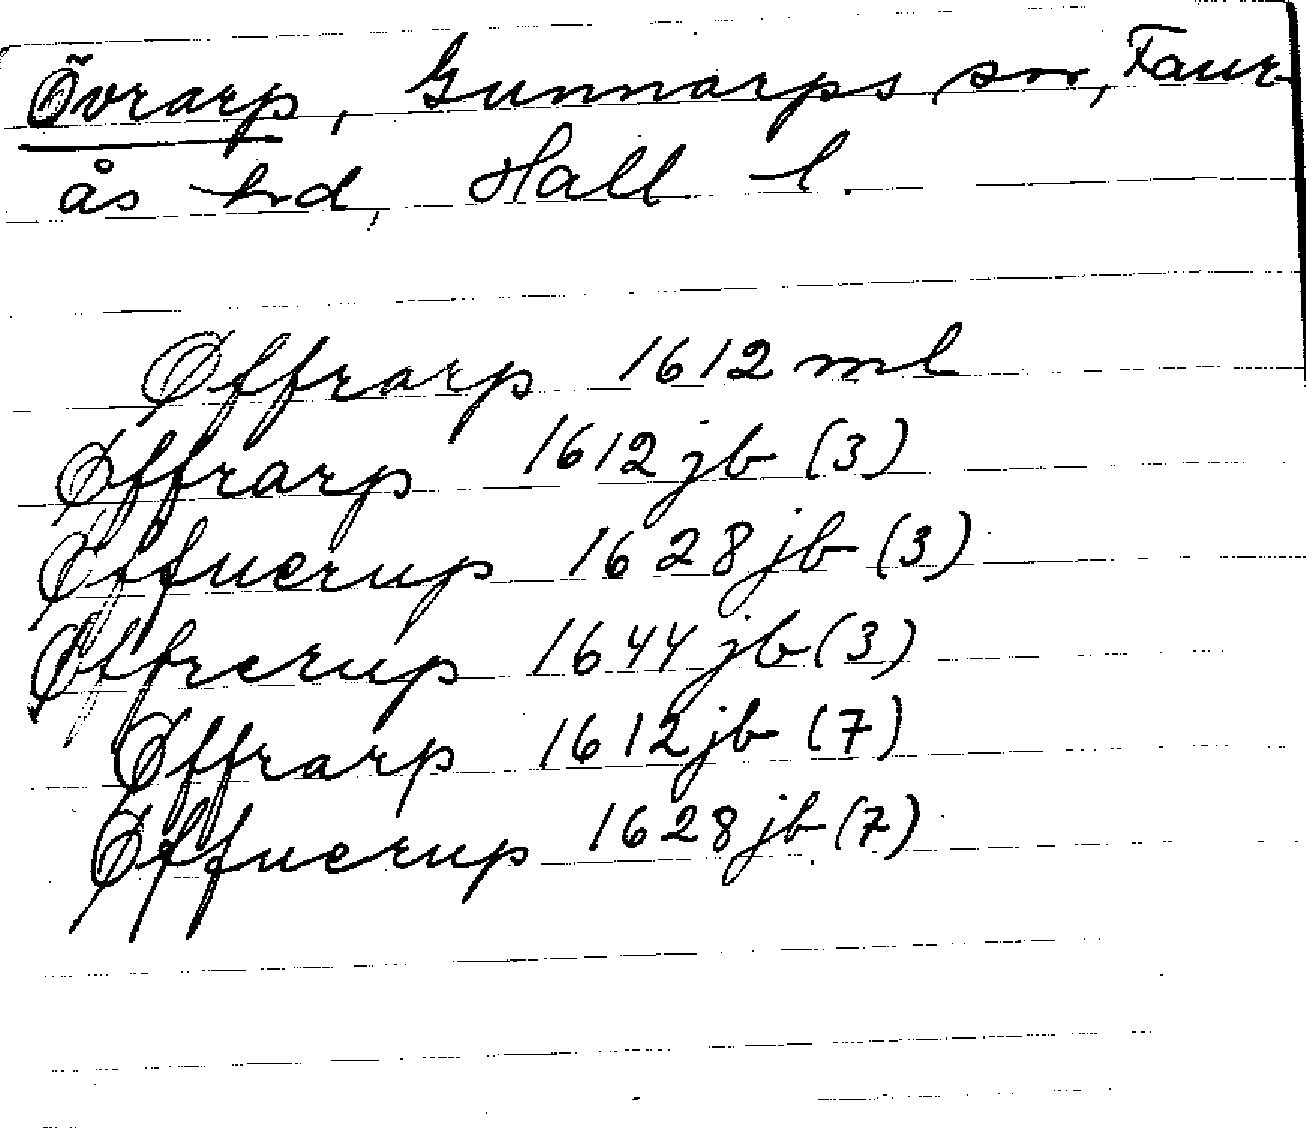 Övrarp, Gunnarps sn, Faur-
ås hd, Hall l.
Øffrarp 1612 ml
Øffrarp 1612 jb (3)
Øffuerup 1628 jb (3)
Øffrerup 1644 jb (3)
Øffrarp 1612 jb (7)
Øffuerup 1628 jb (7)